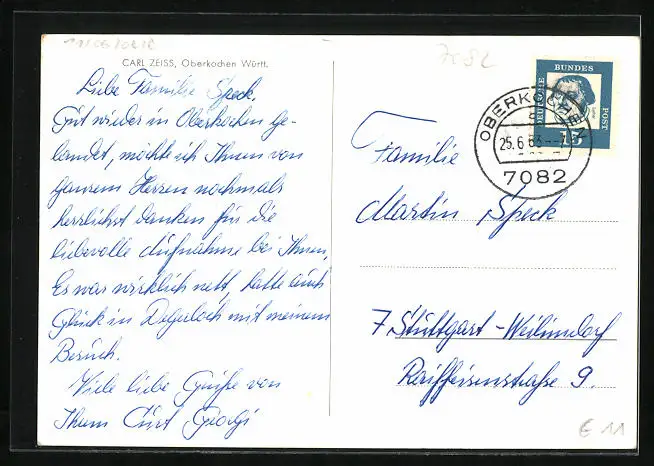 CARL ZEISS, Oberkochen Württ.
Liebe Familie Speck,
Gut wieder in Oberkochen ge-
landet, möchte ich Ihnen von
ganzem Herzen nochmals
herzlichst danken für die
liebevolle Aufnahme bei Ihnen,
Es war wirklich nett, hatte auch
Glück in Degerloch mit meinem
Besuch.
Viele liebe Grüße von
Ihrem Curt Giorgi
DEUTSCHE BUNDES POST
15
OBERKOCHEN
25.6.63
7082
Familie
Martin Speck
7 Stuttgart-Weilimdorf
Raiffeisenstraße 9.
€ 11